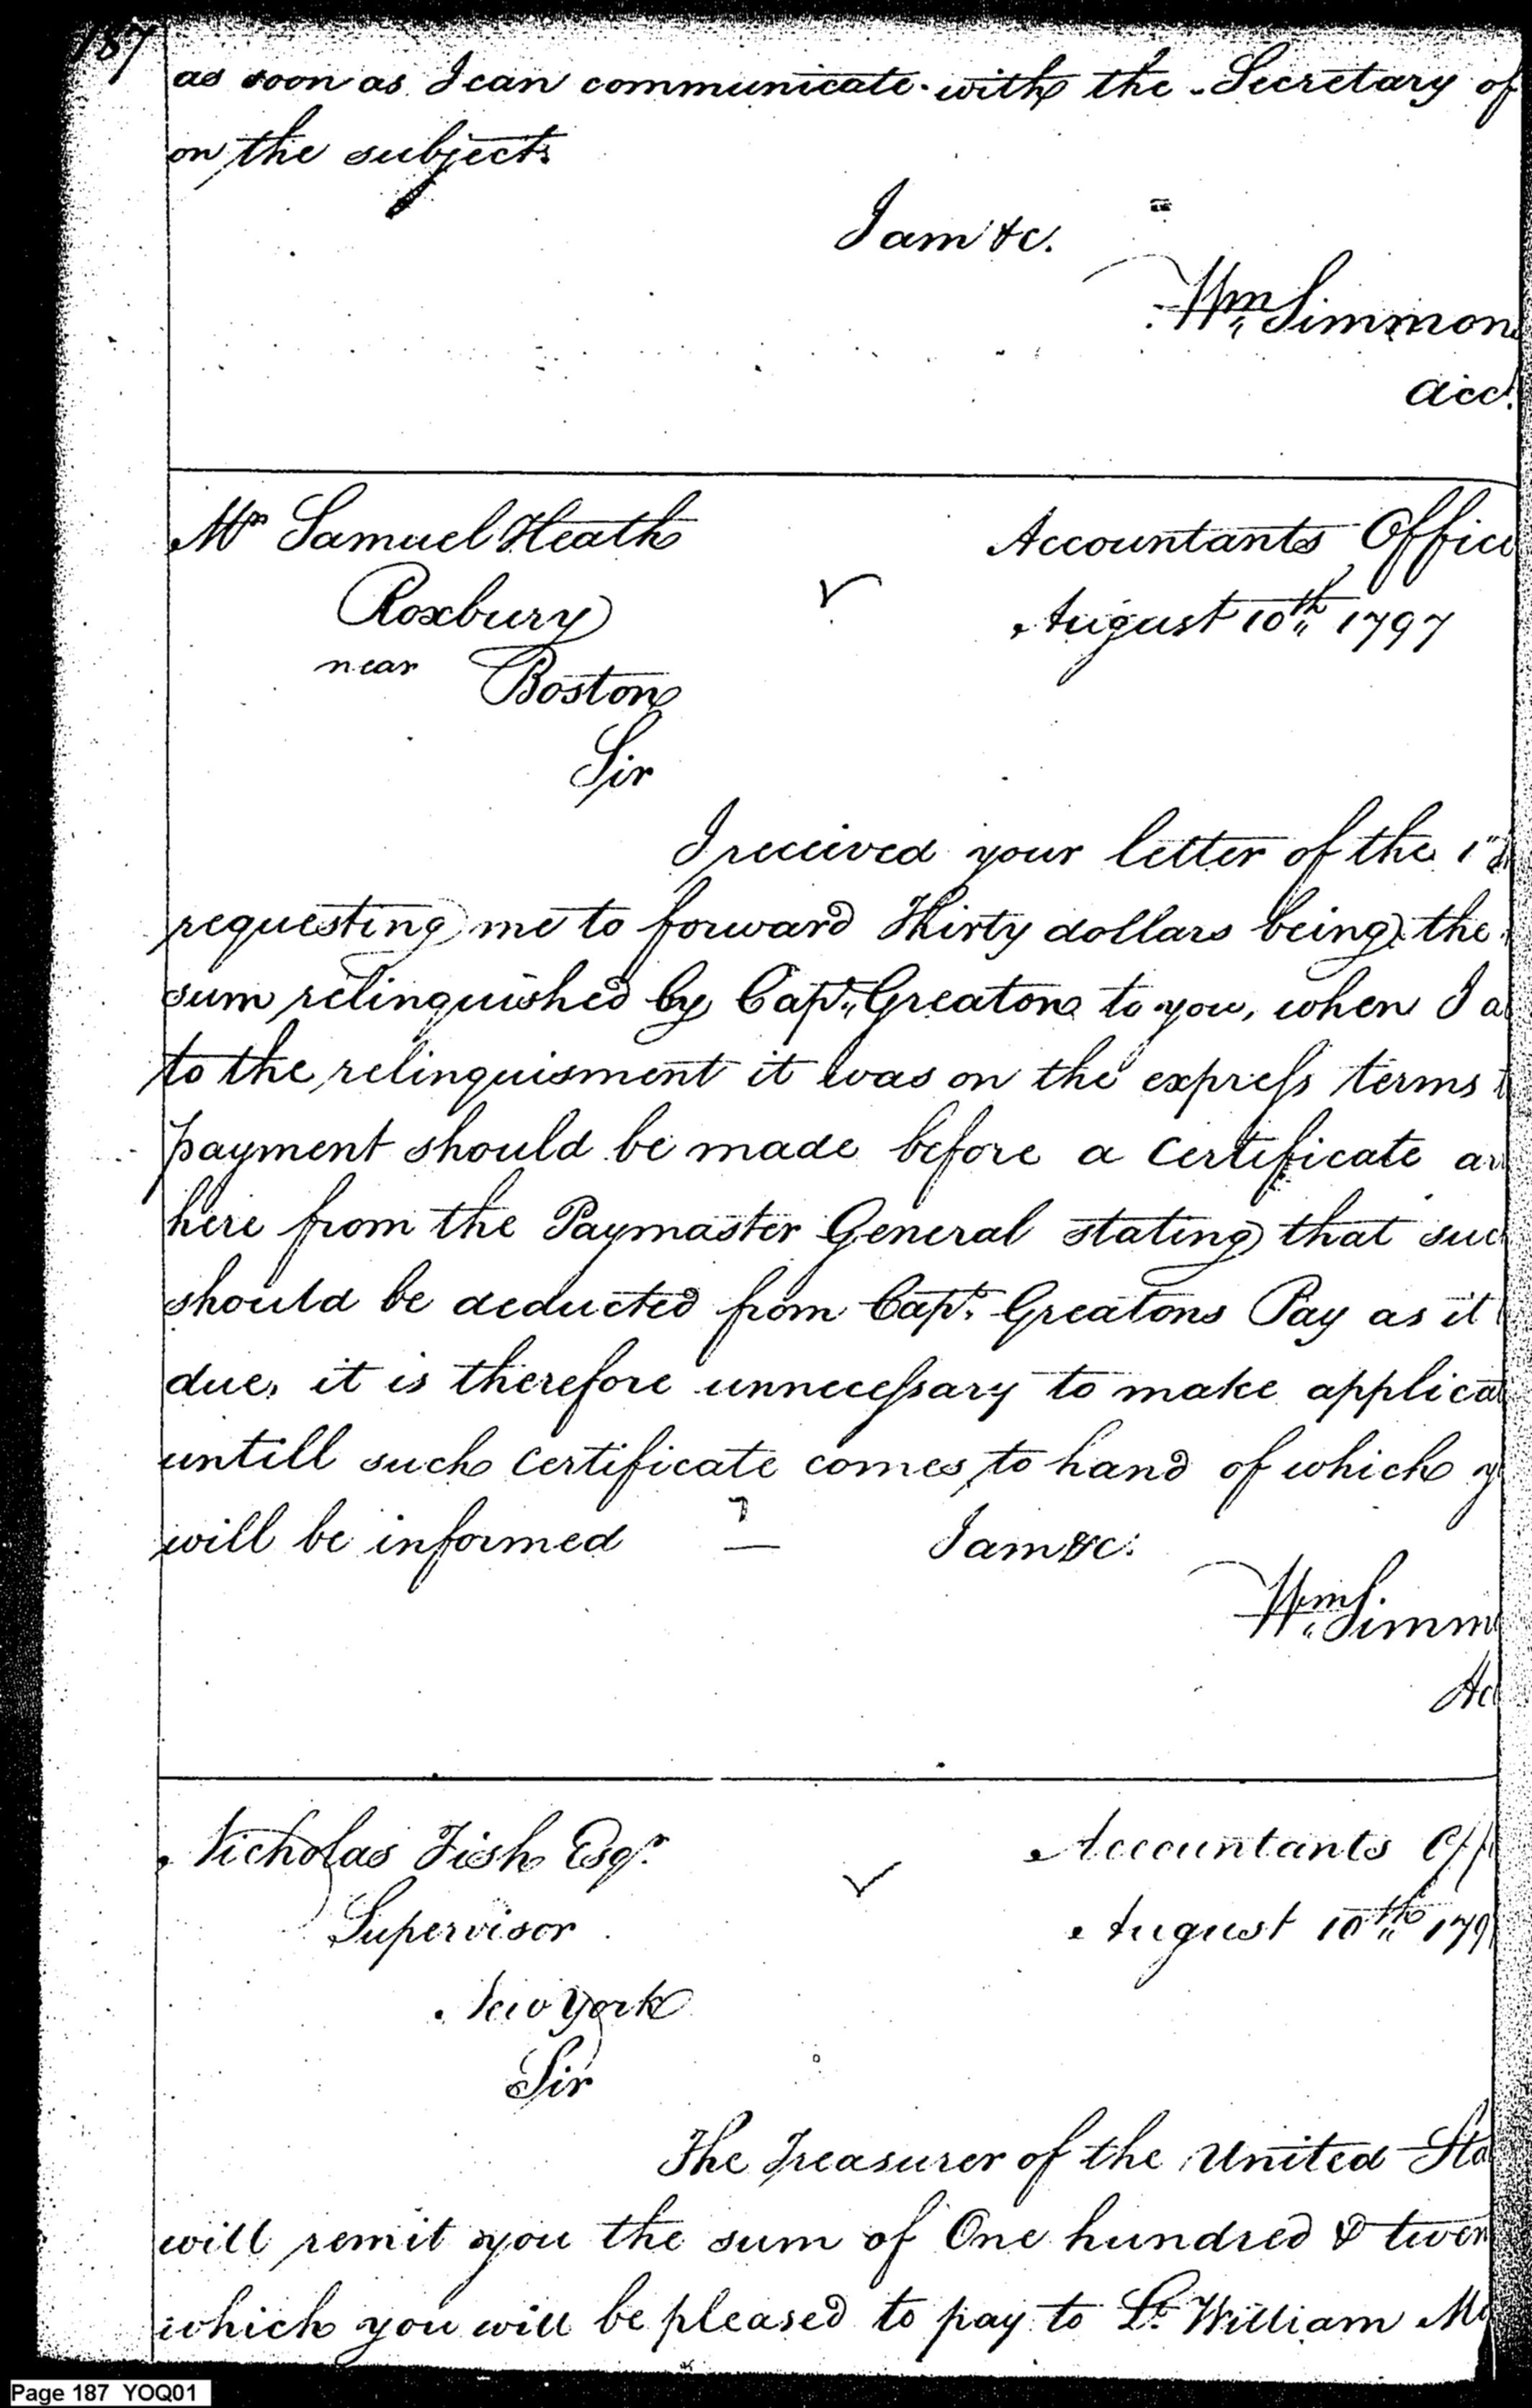 187
as soon as I can communicate with the Secretary of
on the subject
I am &c.
Wm Simmon
Acct.
Mr Samuel Heath
Accountants Office
Roxbury
August 10th 1797
near Boston
Sir
I received your letter of the 1st
requesting me to forward Thirty dollars being the
sum relinquished by Capt. Greaton to you, when I a
to the relinquisment it was on the express terms
payment should be made before a certificate ar
here from the Paymaster General stating that suc
should be deducted from Capt. Greatons Pay as it
due, it is therefore unnecessary to make applica
untill such certificate comes to hand of which y
will be informed — I am &c.
Wm Simm
Ac
Nicholas Fish Esqr.
Accountants Off
Supervisor
August 10th 179
New York
Sir
The Treasurer of the United Sta
will remit you the sum of One hundred & twen
which you will be pleased to pay to Lt. William M
Page 187 YOQ01